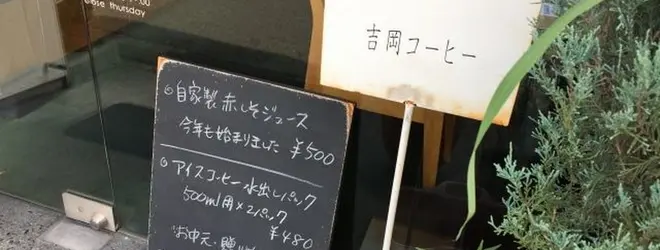 close thursday
吉岡コーヒー
◎自家製 赤しそジュース
今年も始まりました ¥500
◎アイスコーヒー水出しパック
500ml用×2パック
¥480
お中元・贈